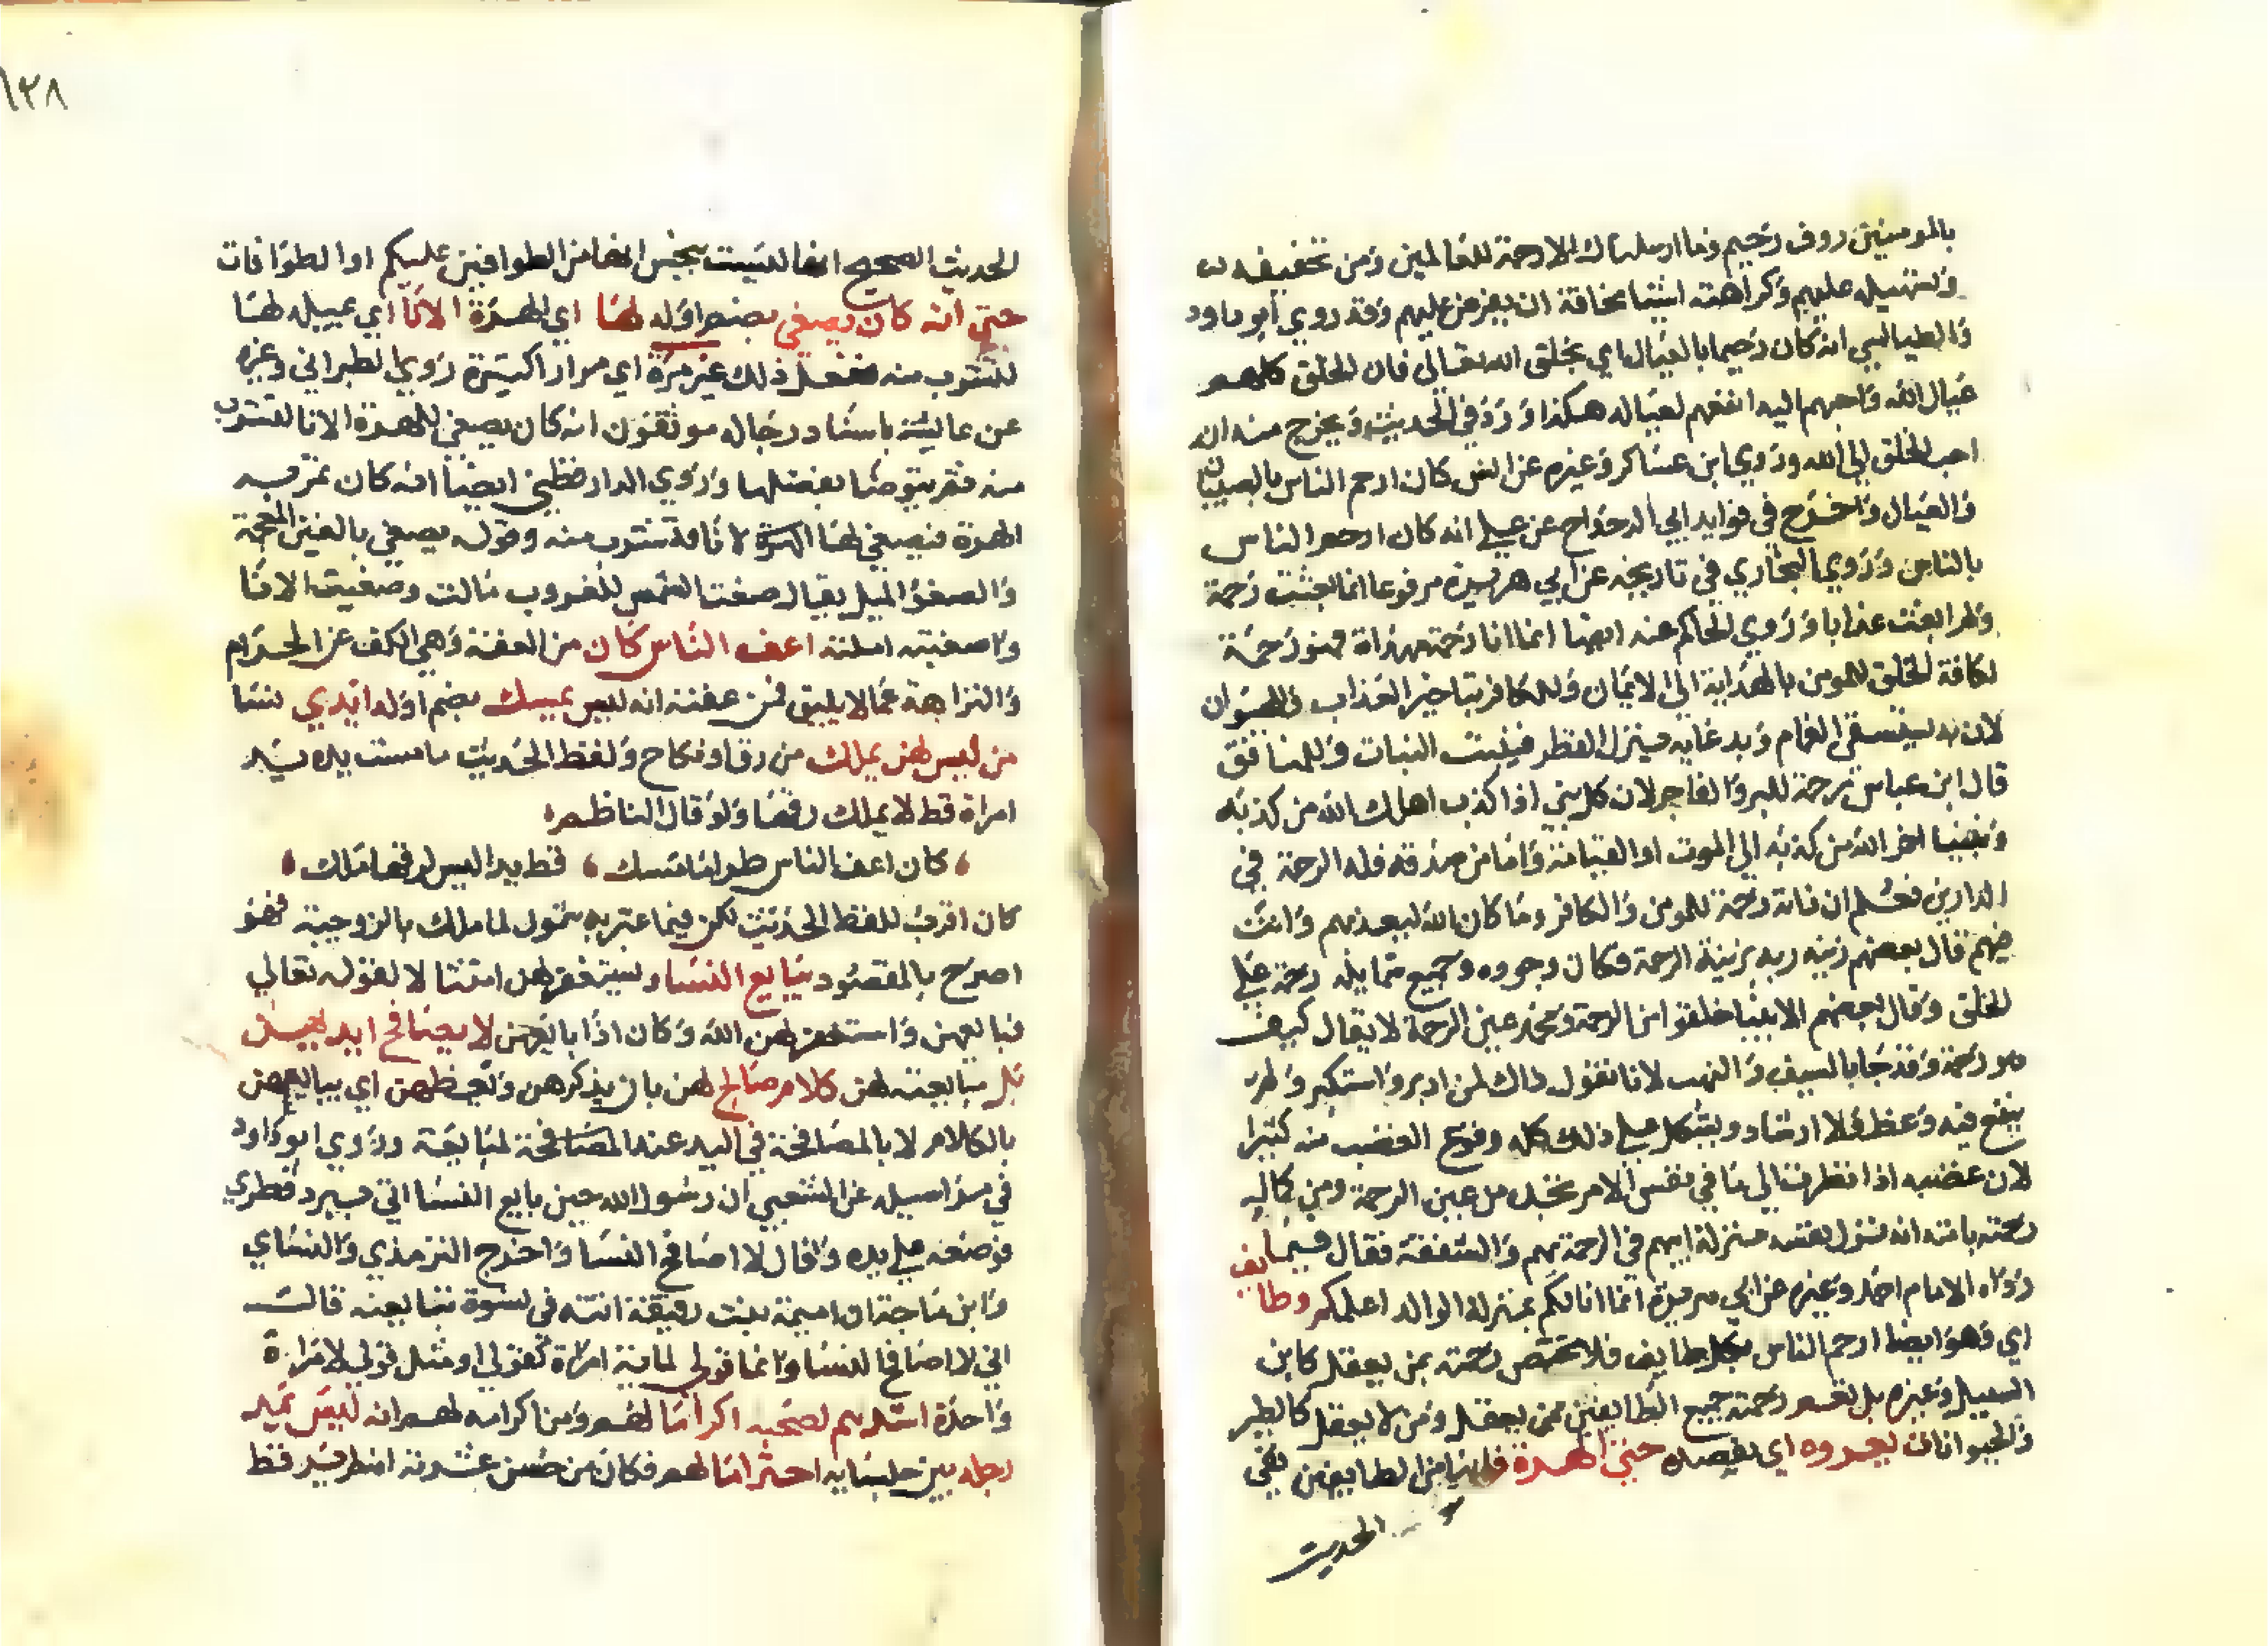 بالمومنين روف رحيم وما ارسلناك الا رحمة للعالمين ومن تخفيفه
وتسهيله عليهم وكراهته اشيا مخافة ان يفرض عليهم وقد روي ابو داود
والطيالسي انه كان رحيما بالعيال اي بخلق الله تعالي فان الخلق كلهم
عيال الله واحبهم اليه انفعهم لعياله هكذا ورد في الحديث ويخرج منه ان
احب الخلق الي الله وروي ابن عساكر وغيره عن انس كان ارحم الناس بالصبيان
والعيال واخرج في فوايد ابي الدحداح عن علي انه كان ارحم الناس
بالناس وروي البخاري في تاريخه عن ابي هريرة مرفوعا انما بعثت رحمة
ولم ابعث عذابا وروي الحاكم عنه ايضا انما انا رحمة مهداة فهو رحمة
لكافة الخلق للمومن بالهداية الي الايمان وللكافر بتاخير العذاب وللحيوان
لان به يستسقي الغمام وبدعايه ينزل القطر فينبت النبات وللمنافق
قال ابن عباس رحمة للبر والفاجر لان كل نبي اذا كذب اهلك الله من كذبه
ونبينا اخر الله من كذبه الي الموت او القيامة واما من صدقه فله الرحمة في
الدارين فعلم ان ذاته رحمة للمومن والكافر وما كان الله ليعذبهم وانت
فيهم قال بعضهم زينه ربه بزينة الرحمة فكان وجوده وجميع شمايله رحمة علي
الخلق وقال بعضهم الانبيا خلقوا من الرحمة ومحمد عين الرحمة لا يقال كيف
هو رحمة وقد جا بالسيف والنهب لانا نقول ذاك لمن ادبر واستكبر ولم
ينفع فيه وعظ ولا ارشاد ويشكل علي ذلك كله وقوع الغضب منه كثيرا
لان غضبه اذا نظرت الي ما في نفس الامر تجده من عين الرحمة ومن كمال
رحمته بامته انه نزل نفسه منزلة ابيهم في الرحمة بهم والشفقة فقال فيما
رواه الامام احمد وغيره عن ابي هريرة انما انا لكم بمنزلة الوالد اعلمكم وطايف
اي وهو ايضا ارحم الناس بكل طايف فلا تختص رحمته بمن يعقل كابن
السبيل وغيره بل تعم رحمته جميع الطايفين ممن يعقل ومن لا يعقل كالطير
والحيوانات يعروه اي يقصده حتي الهرة فانها من الطايفين ففي
الحديث
١٢٨
الحديث الصحيح انها ليست بنجس انها من الطوافين عليكم او الطوافات
حتي انه كان يصغي بضم اوله لها اي للهرة الانا اي يميله لها
لتشرب منه فعل ذلك غير مرة اي مرارا كثيرة روي الطبراني وغيره
عن عايشة باسناد رجاله موثقون انه كان يصغي للهرة الانا لتشرب
منه ثم يتوضا بفضلها وروي الدارقطني ايضا انه كان تمر به
الهرة فيصغي لها الاناء فتشرب منه وقوله يصغي بالغين المعجمة
والصغو الميل يقال صغت الشمس للغروب مالت وصغيت الانا
واصغيته املته اعف الناس كان من العفة وهي الكف عن الحرام
والنزاهة عما لا يليق فمن عفته انه ليس يمسك بضم اوله ايدي نسا
من ليس لهن يملك من رق او نكاح ولفظ الحديث ما مست يده يد
امراة قط لا يملك رقها ولو قال الناظم
كان اعف الناس طرا ما مسك ، قط يدا ليس لرقها ملك
كان اقرب للفظ الحديث لكن فيما عبر به شمول لما ملك بالزوجية فهو
اصرح بالمقصود يبايع النسا ويستغفر لهن امتثالا لقوله تعالي
فبايعهن واستغفر لهن الله وكان اذا بايعهن لا يصافح ايديهن
بل مبايعته لهن كلام صالح لهن بان يذكرهن ويعظهن اي يبايعهن
بالكلام لا بالمصافحة في اليد عند المصافحة لمبايعة وروي ابو داود
في مراسيله عن الشعبي ان رسول الله حين بايع النسا اتي ببرد قطري
فوضعه علي يده وقال لا اصافح النسا واخرج الترمذي والنساي
وابن ماجة ان اميمة بنت رقيقة اتته في نسوة تبايعنه قالت
اني لا اصافح النسا وانما قولي لماية امراة كقولي او مثل قولي لامراة
واحدة اشدهم لصحبه اكراما لهم ومن اكرامه لهم انه ليس يمد
رجله بين جلسايه احتراما لهم فكان من حسن عشرته انه لم يمد قط